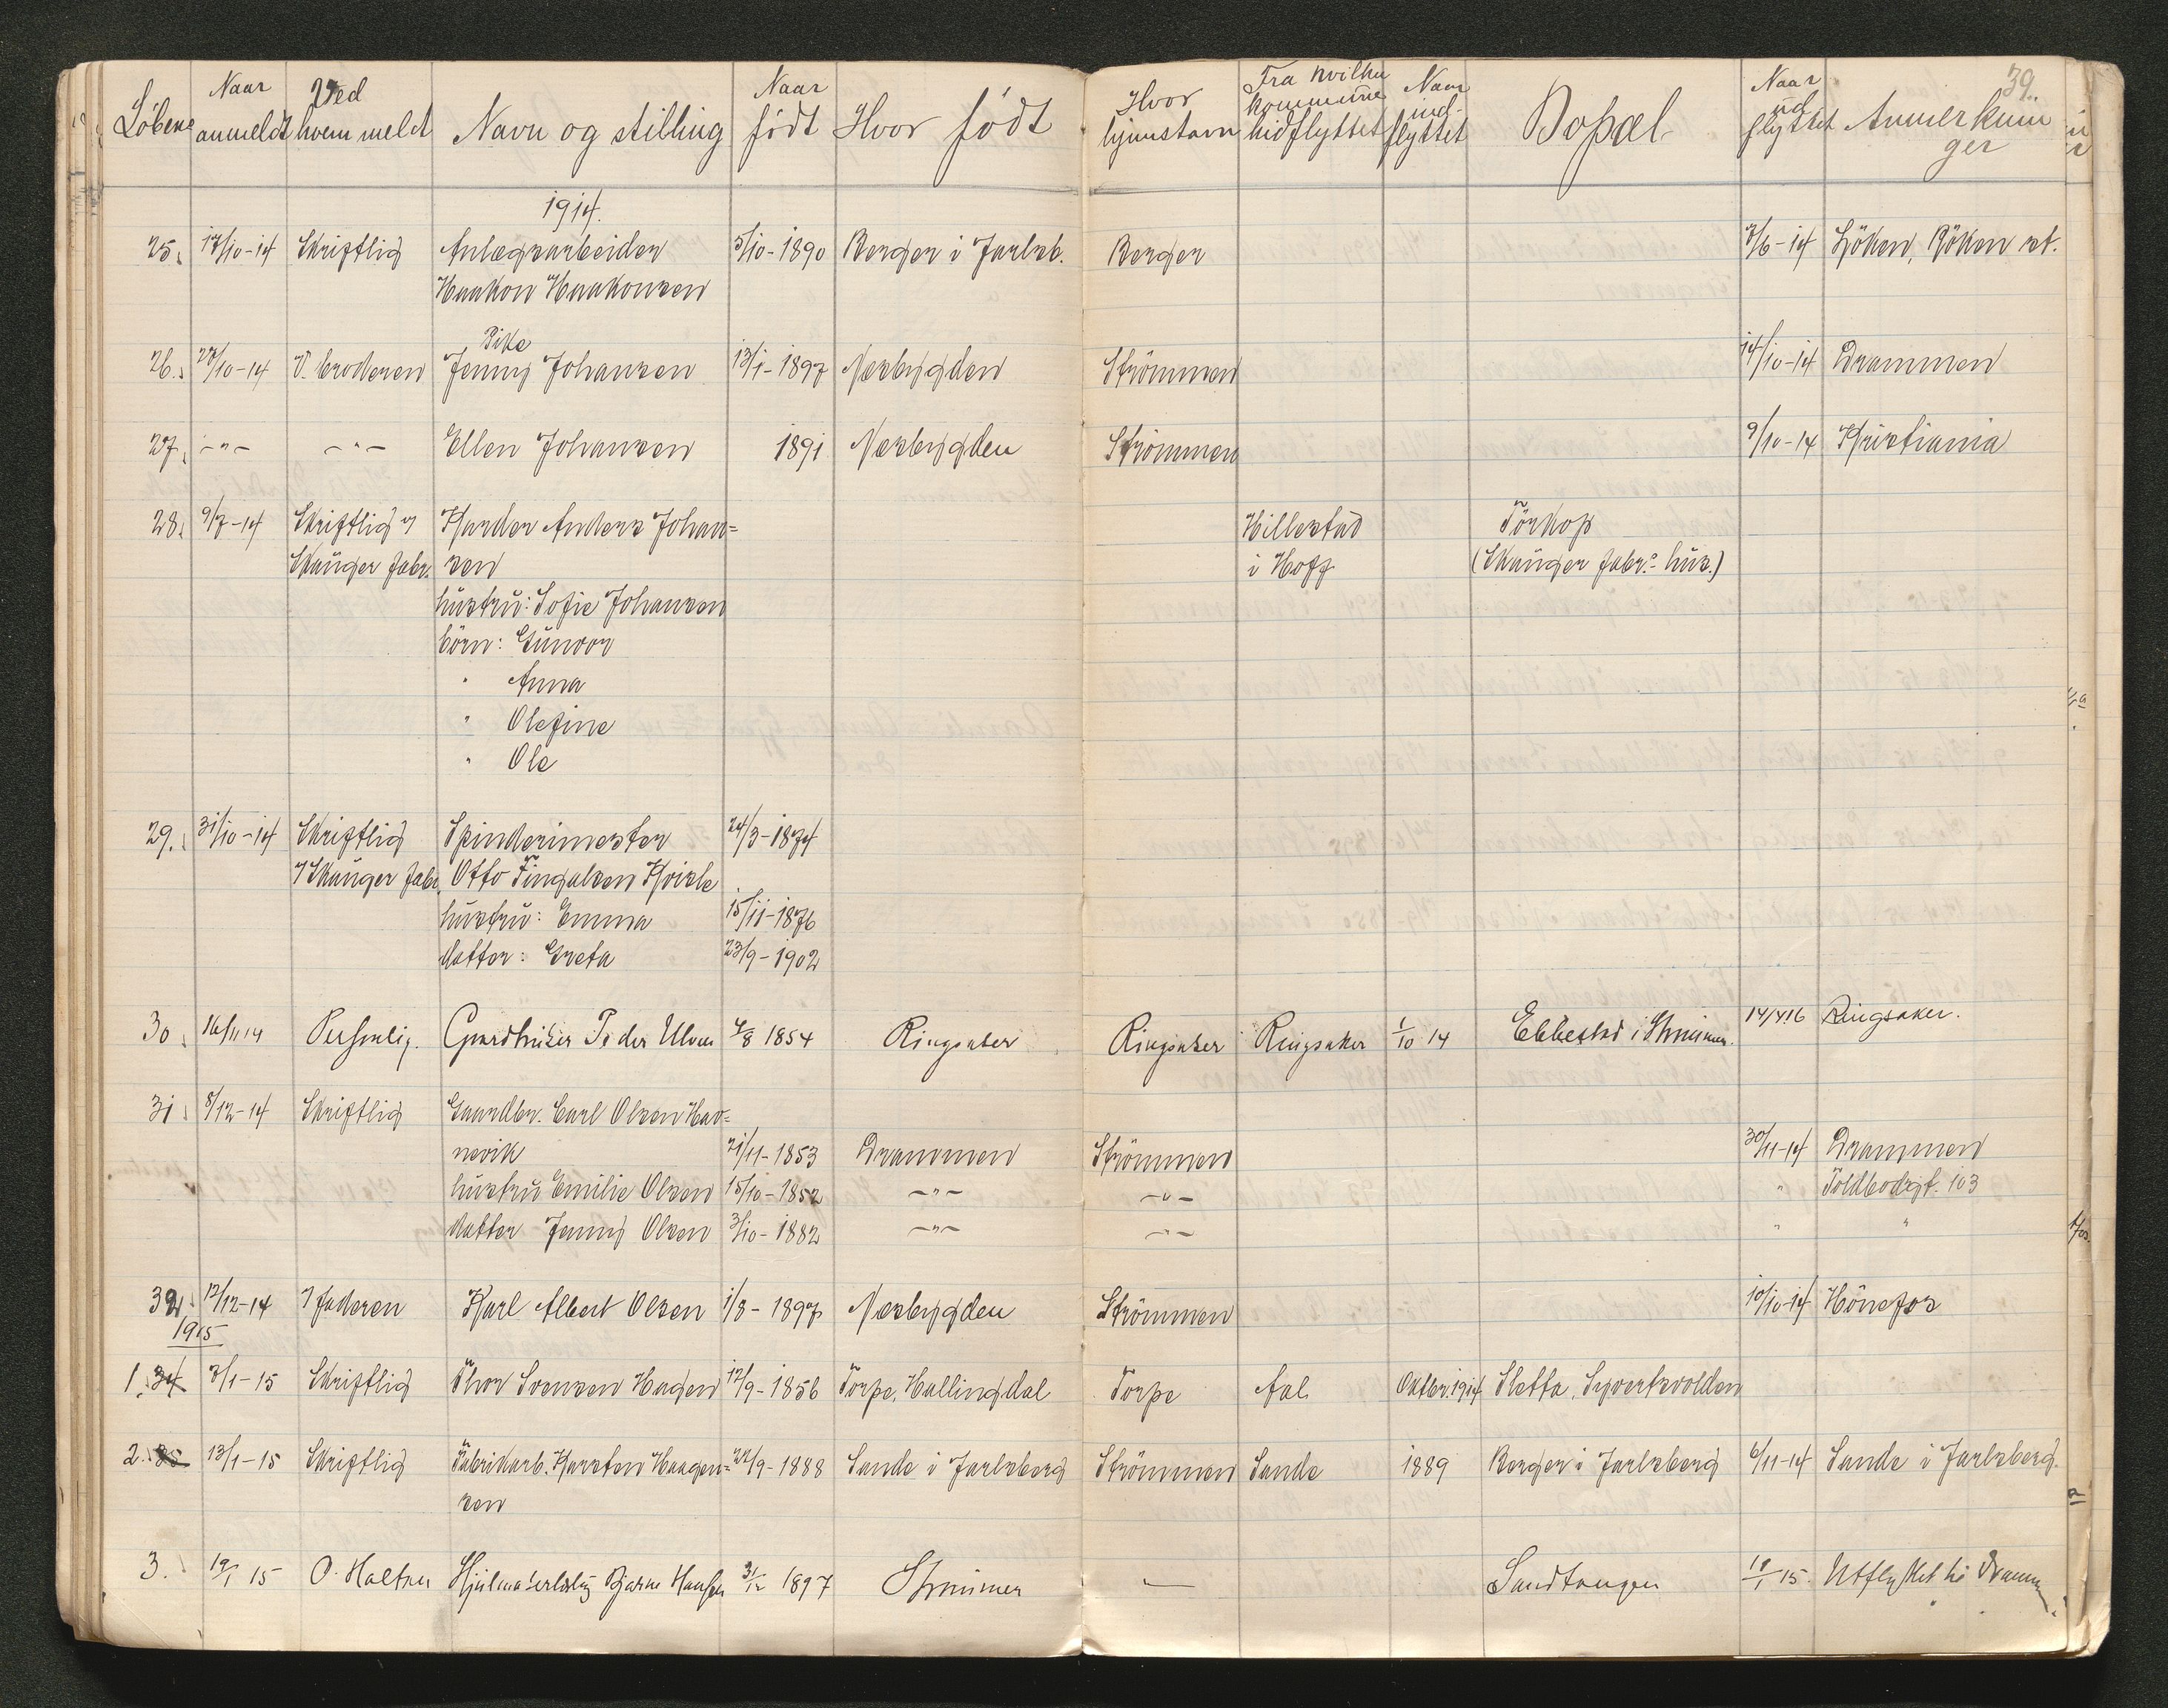 39.
Löbene Naar anmeldt Ved hvem meldt Navn og stilling Naar födt Hvor födt Hvor hjemstavn Fra hvilken kommune hidflyttet Naar ind-flyttet Bopæl Naar ud flyttet Anmerkninger
1914.
25. 17/10-14 Skriftlig Anlægsarbeider 5/10-1890 Berger i Jarlsb. Berger 7/6-14 Höken, Röken st.
Haakon Haakonsen
Pike
26. 27/10-14 V. broderen Jenny Johansen 13/1-1897 Nesbygden Strömmen 14/10-14 Drammen
27. -"- -"- Ellen Johansen 1891 Nesbygden Strömmen 9/10-14 Kristiania
28. 9/7-14 Skriftlig v Karder Anders Johan= Hillestad Törkop
Skauger Fabr. sen i Hoff (Skauger Fabr.s hus.)
hustru: Sofie Johansen
börn: Gunvor
" Anna
" Olefine
" Ole
29. 31/10-14 Skriftlig Spinderimester 24/3-1874
v Skauger Fabr. Otto Fingalsen Kvisle
hustru: Emma 15/11-1876
datter: Greta 23/9-1902
30. 16/11 14 Personlig. Gaardbruker Peder Ulven 4/8 1854 Ringsaker Ringsaker Ringsaker 1/10 14 Ebbestad i Strømmen. 14/4 16 Ringsaker.
31. 8/12-14 Skriftlig Gaardbr. Carl Olsen Hav=
nevik 21/11-1853 Drammen Strömmen 30/11-14 Drammen
hustru Emilie Olsen 15/10-1852 -"- -"- " Toldbodgt. 103
datter Jenny Olsen 3/10-1882 -"- -"- " "
32. 12/12-14 v Faderen Karl Albert Olsen 1/8-1897 Nesbygden Strömmen 10/10-14 Hönefos
1915
1. 34 3/1-15 Skriftlig Thor Svensen Hagen 12/9-1856 Torpe, Hallingdal Torpe Aal Oktbr. 1914 Sletta, Syvertsvolden
2. 35 13/1-15 Skriftlig Fabrikarb. Karsten Haagen= 22/9-1888 Sande i Jarlsberg Strömmen Sande 1889 Berger i Jarlsberg 6/11-14 Sande i Jarlsberg.
sen
3. 19/1 15 O. Holtsen Bjarne Hansen 31/12 1897 Strømmen — Sandtangen 18/1 15. Utflyttet til Drammen